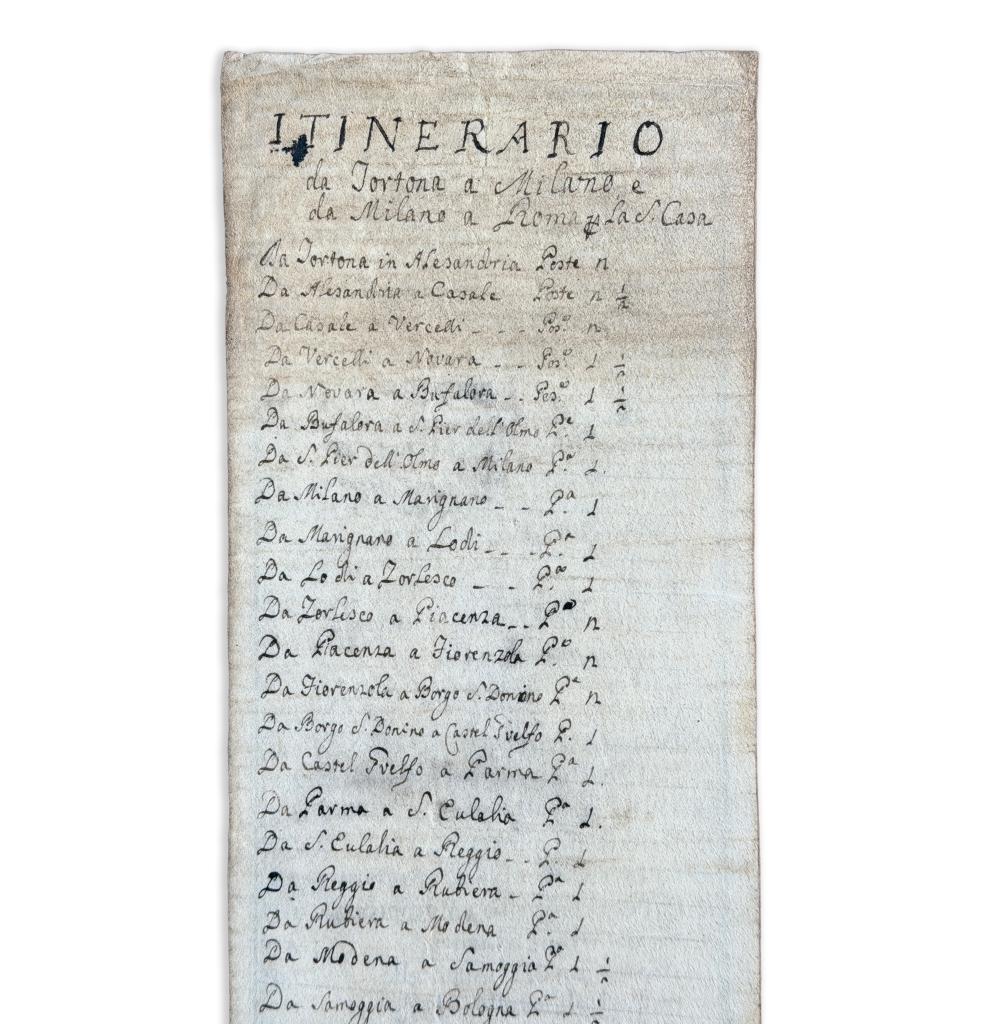 ITINERARIO
da Tortona a Milano e
da Milano a Roma p La S. Casa
Da Tortona in Alesandria Poste 2.
Da Alesandria a Casale Poste 2 1/2
Da Casale a Vercelli - - - Pos.e 2
Da Vercelli a Novara - - Pos.e 1 1/2
Da Novara a Bufalora - . Pos.e 1 1/2
Da Bufalora a S. Pier dell'Olmo P.e 1
Da S. Pier dell'Olmo a Milano P.a 1.
Da Milano a Marignano - - P.a 1
Da Marignano a Lodi - - - P.a 1
Da Lodi a Zorlesco - - P.a 1
Da Zorlesco a Piacenza - . P.e 2
Da Piacenza a Fiorenzola P.e 2
Da Fiorenzola a Borgo S. Donino P.a 2
Da Borgo S. Donino a Castel Gvelfo P. 1
Da Castel Gvelfo a Parma P.a 1.
Da Parma a S. Eulalia P.a 1.
Da S. Eulalia a Reggio - . P. 1
Da Reggio a Rubiera - P.a 1
Da Rubiera a Modena P.a 1
Da Modena a Samoggia P.a 1 1/2
Da Samoggia a Bologna P.a 1 1/2